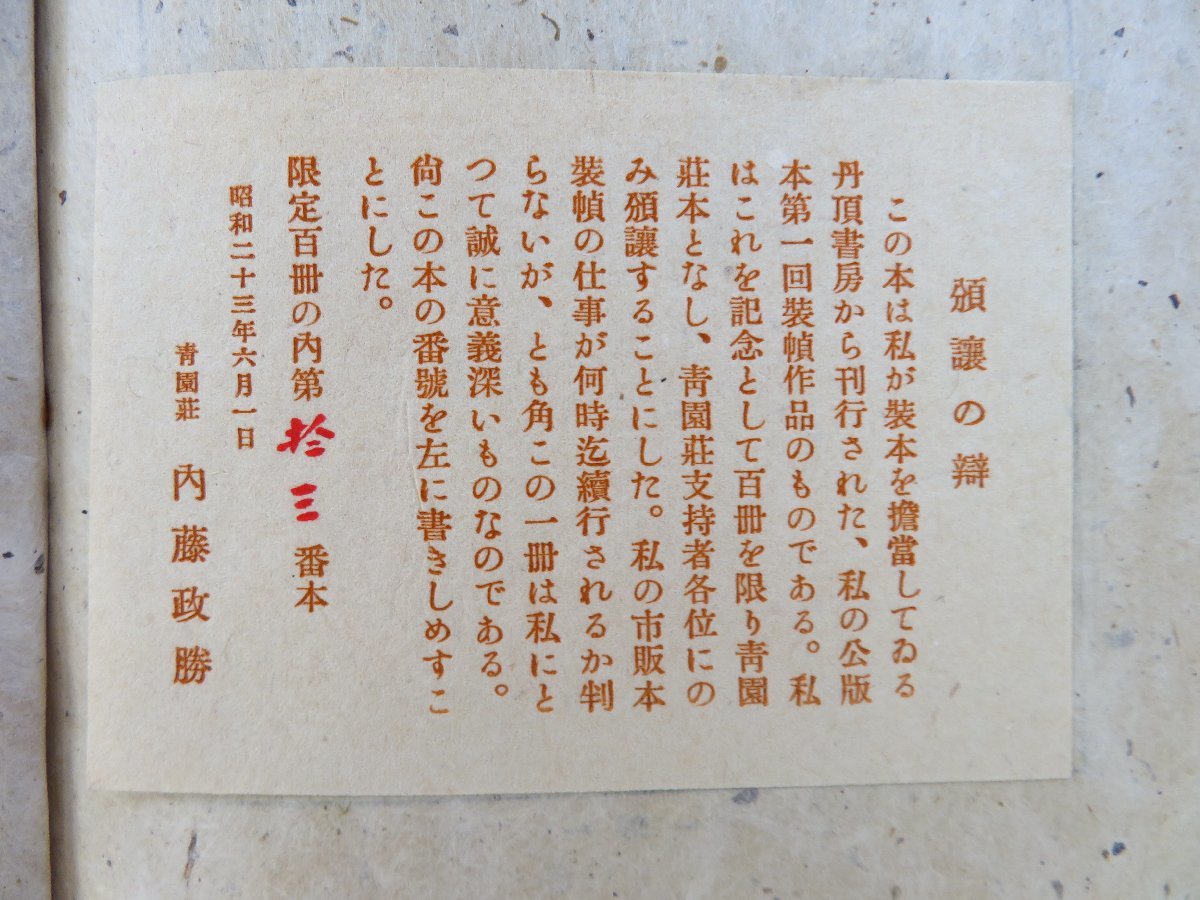 頒讓の辯
この本は私が裝本を擔當してゐる
丹頂書房から刊行された、私の公版
本第一回裝幀作品のものである。私
はこれを記念として百冊を限り靑園
莊本となし、靑園莊支持者各位にの
み頒讓することにした。私の市販本
裝幀の仕事が何時迄續行されるか判
らないが、とも角この一冊は私にと
つて誠に意義深いものなのである。
尙この本の番號を左に書きしめすこ
とにした。
限定百冊の內第拾三番本
昭和二十三年六月一日
靑園莊 內藤政勝